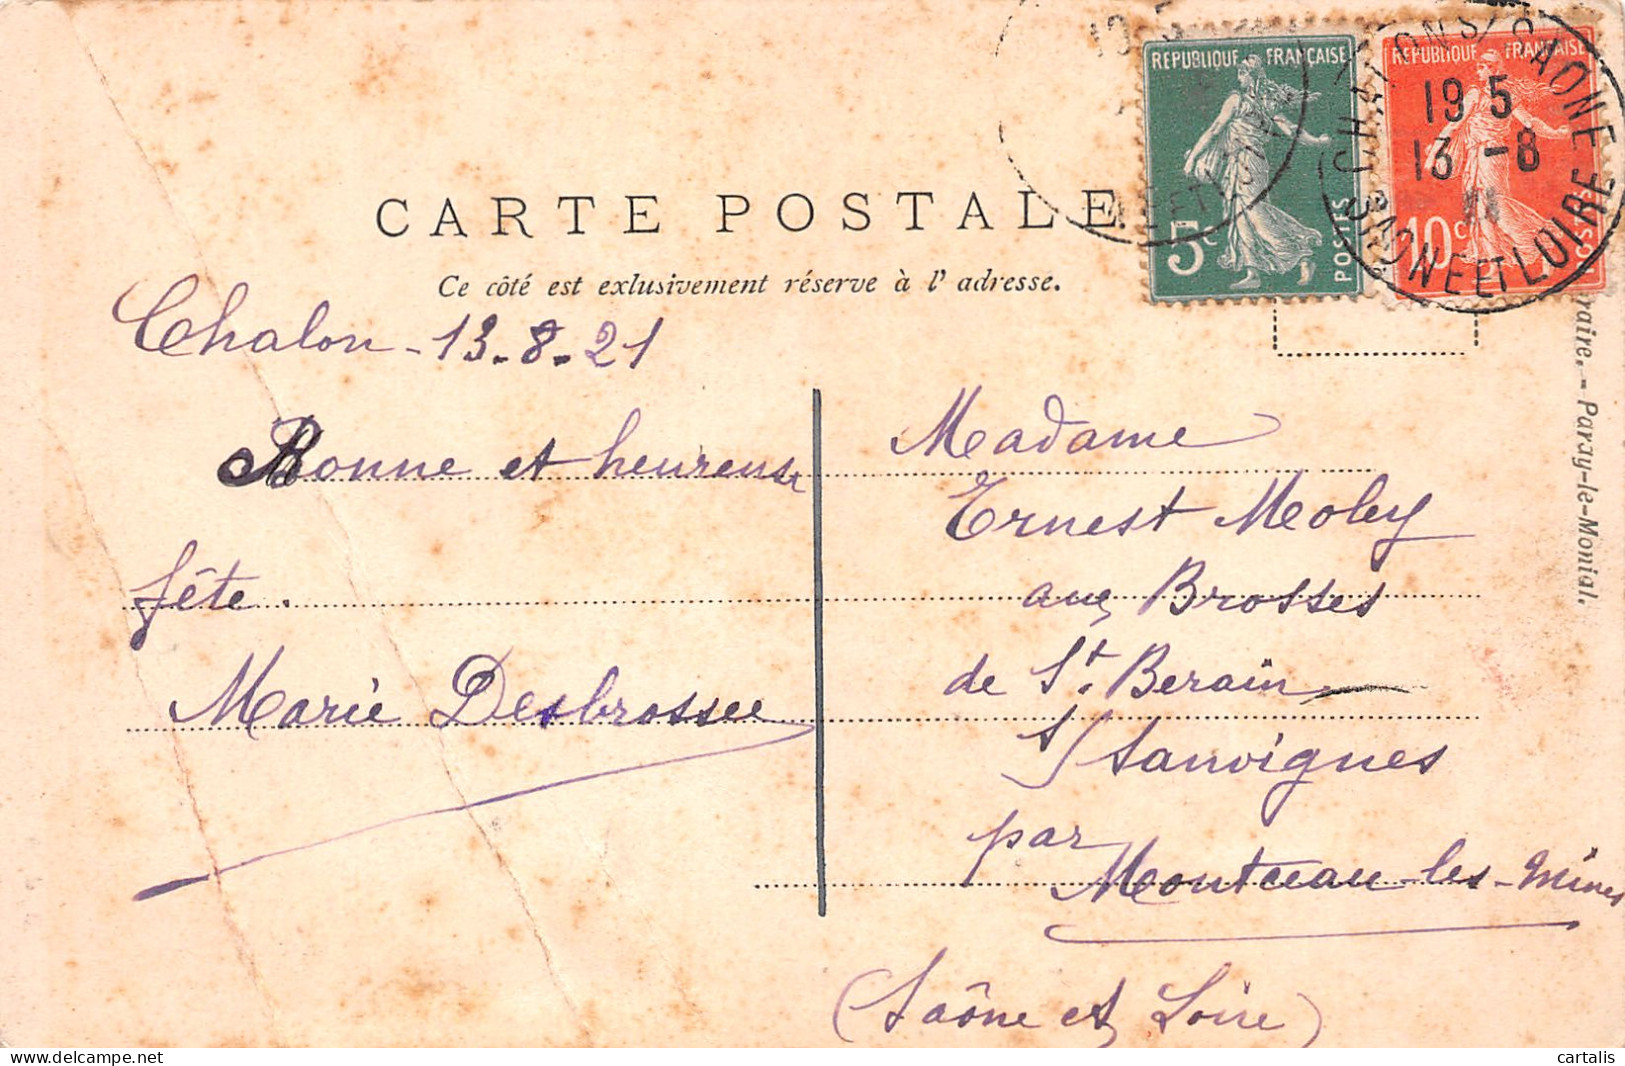 REPUBLIQUE FRANÇAISE
5c
POSTES
REPUBLIQUE FRANÇAISE
10c
POSTES
CHALON S/ SAONE
19 5
13 -8
SAONE ET LOIRE
CARTE POSTALE
Ce côté est exlusivement réserve à l' adresse.
Chalon - 13-8-21
Bonne et heureuse
fête.
Marie Desbrosses
Madame
Ernest Moley
aux Brosses
de St. Berain
s/ Sanvignes
par
Montceau-les-Mines
(Saône et Loire)
raire. - Paray-le-Monial.
cartalis